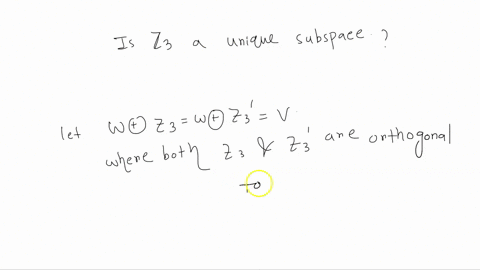 Is Z3 a unique subspace ?
let W⊕Z3 = W⊕Z3' = V.
where both Z3 & Z3' are orthogonal
to